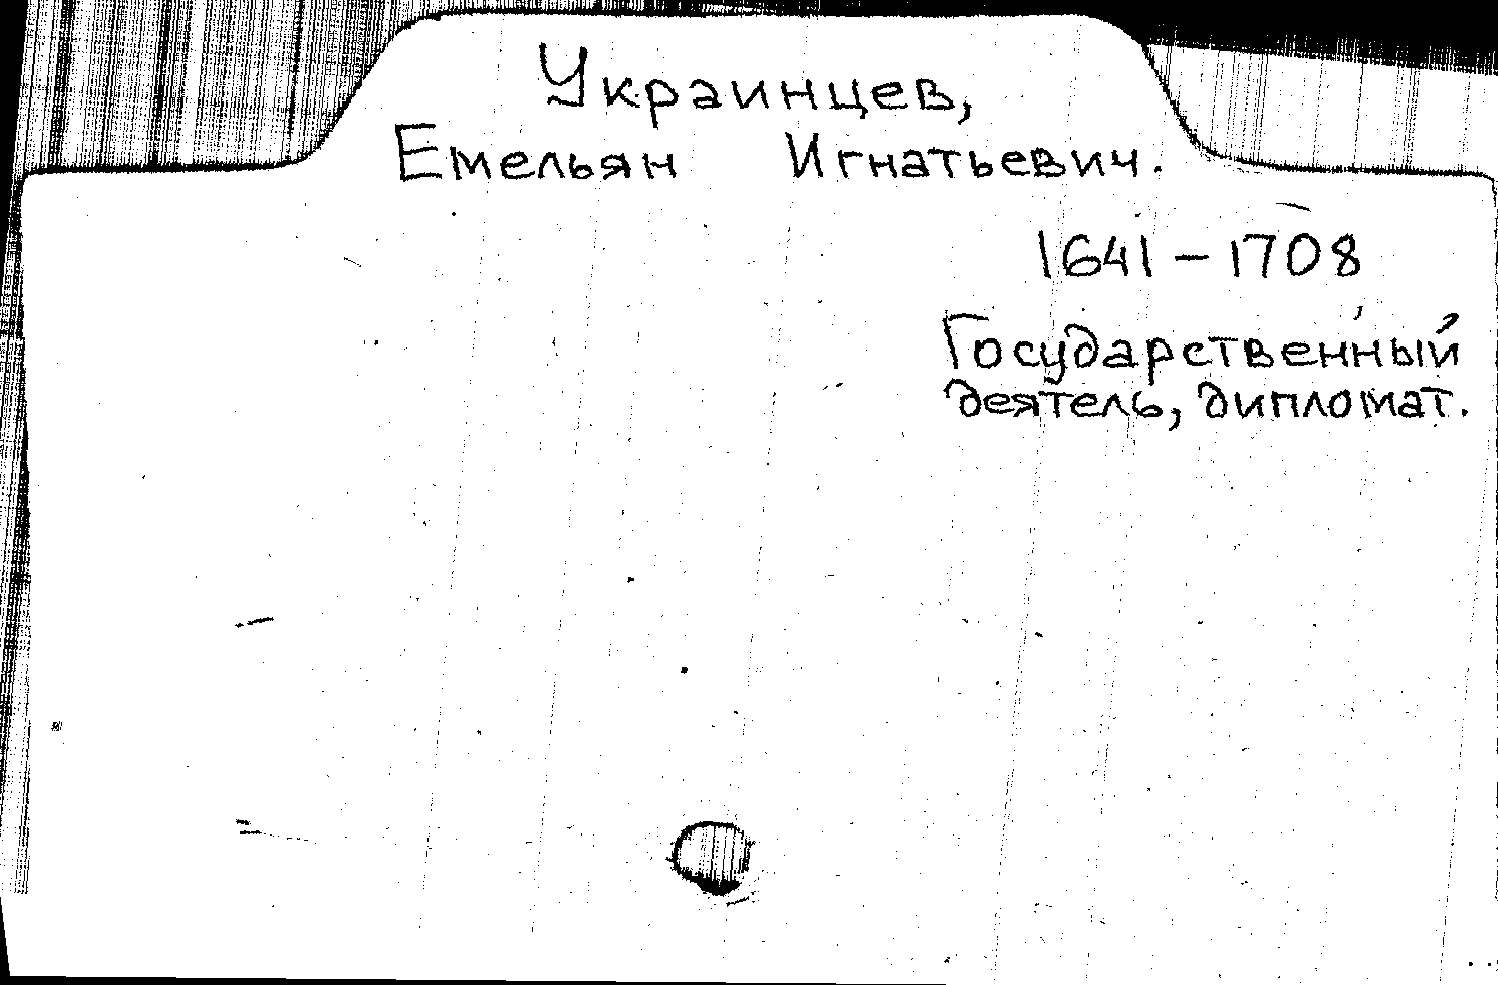 Украинцев,
Емельян Игнатьевич.
1641 – 1708
Государственный
деятель, дипломат.